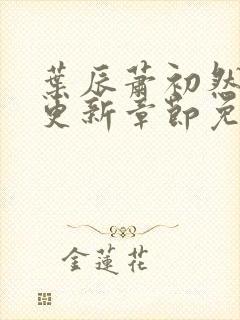 葉辰蕭初然
更新章節免
金蓮花